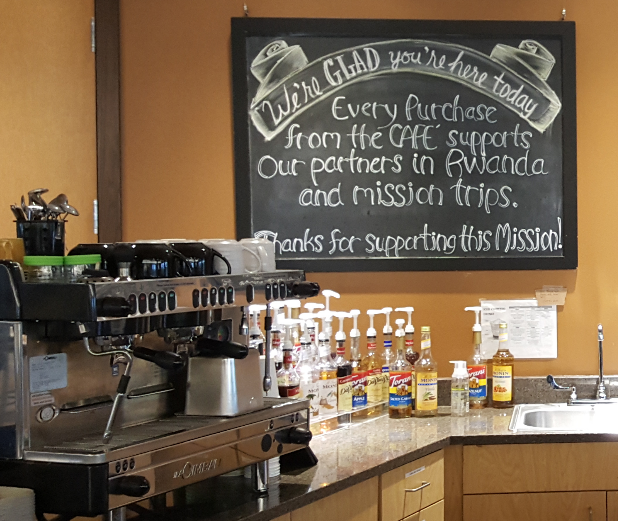 We're GLAD you're here today
Every Purchase
from the CAFÉ supports
Our partners in Rwanda
and mission trips.
Thanks for supporting this Mission!
Torani
Torani